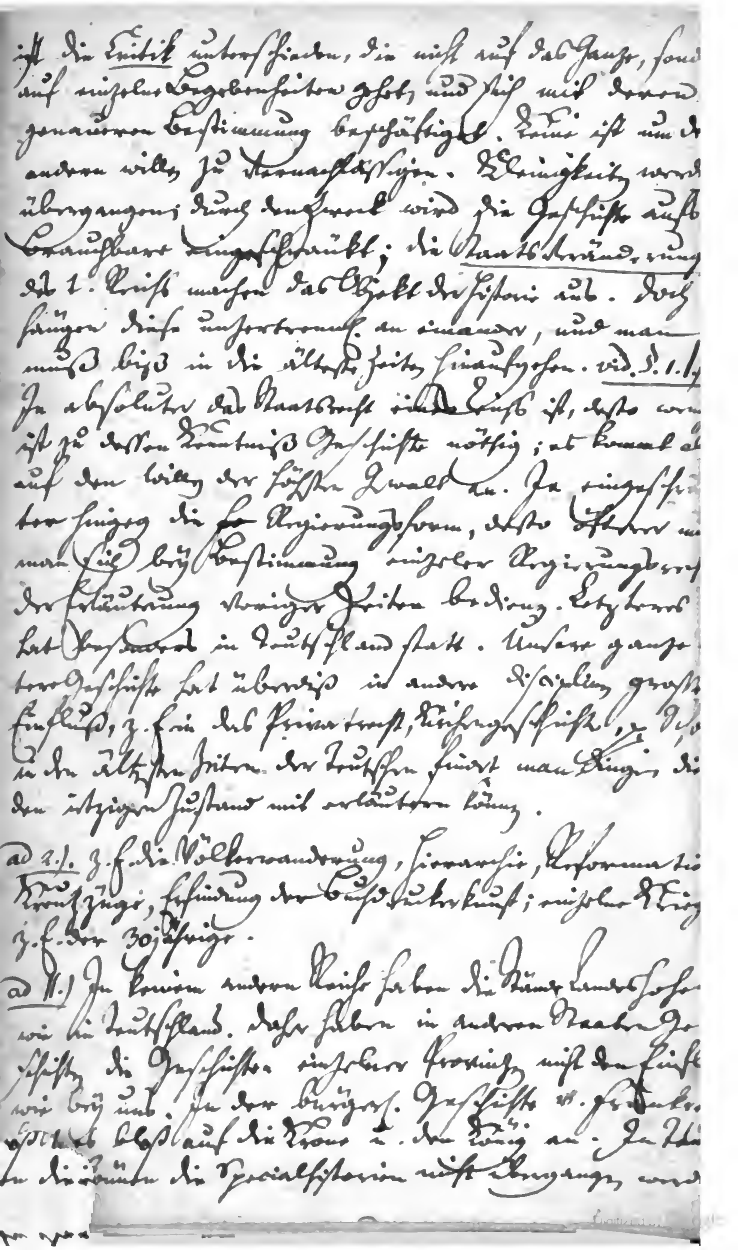 ist die Critik unterschieden, die nicht auf das Ganze, sond
auf einzelne Begebenheiten gehet, und sich mit deren
genaueren Bestimmung beschäftiget. Keine ist um de
andern willen zu vernachlässigen. Kleinigkeiten werde
übergangen; durch den Zweck wird die Geschichte aufs
Brauchbare eingeschränkt; die Staatsveränderung
des t. Reichs machen das Objekt der Historie aus. Doch
hängen diese unzertrennl. an einander, und man
muß biß in die älteste Zeiten hinaufgehen. vid. §. 1.
Je absoluter das Staatsrecht eines Reichs ist, desto wen
ist zu dessen Kenntniß Geschichte nöthig; es kommt al
auf den Willen der höchsten Gewalt an. Je eingeschrä
ter hingeg die Regierungsform, desto öfterer mu
man sich bey Bestimmung einzeler Regierungsrech
der Erläuterung voriger Zeiten bedienen. Letzteres
hat besonders in Teutschland statt. Unsere ganze
tere Geschichte hat überdiß in andere disciplinen große
Einfluß, z. E. in das Privatrecht, Kirchengeschichte, Scho
in den ältesten Zeiten der Teutschen findet man Dinge, die
den itzigen Zustand mit erläutern können.
ad 2.). z. E. die Völkerwanderung, Hierarchie, Reformatio
Kreutzzüge, Erfindung der Buchdruckerkunst; einzelne Krieg
z. E. der 30jährige.
ad 11.) In keinem andern Reiche haben die Stände Landeshohe
wie in Teutschland. Daher haben in anderen Staaten Ge
schichten die Geschichten einzelner Provinzen nicht den Einfl
wie bey uns. In der bürgerl. Geschichte v. Frankre
es bloß auf die Krone u. den König an. In Teu
die können die Specialhistorien nicht übergangen werd